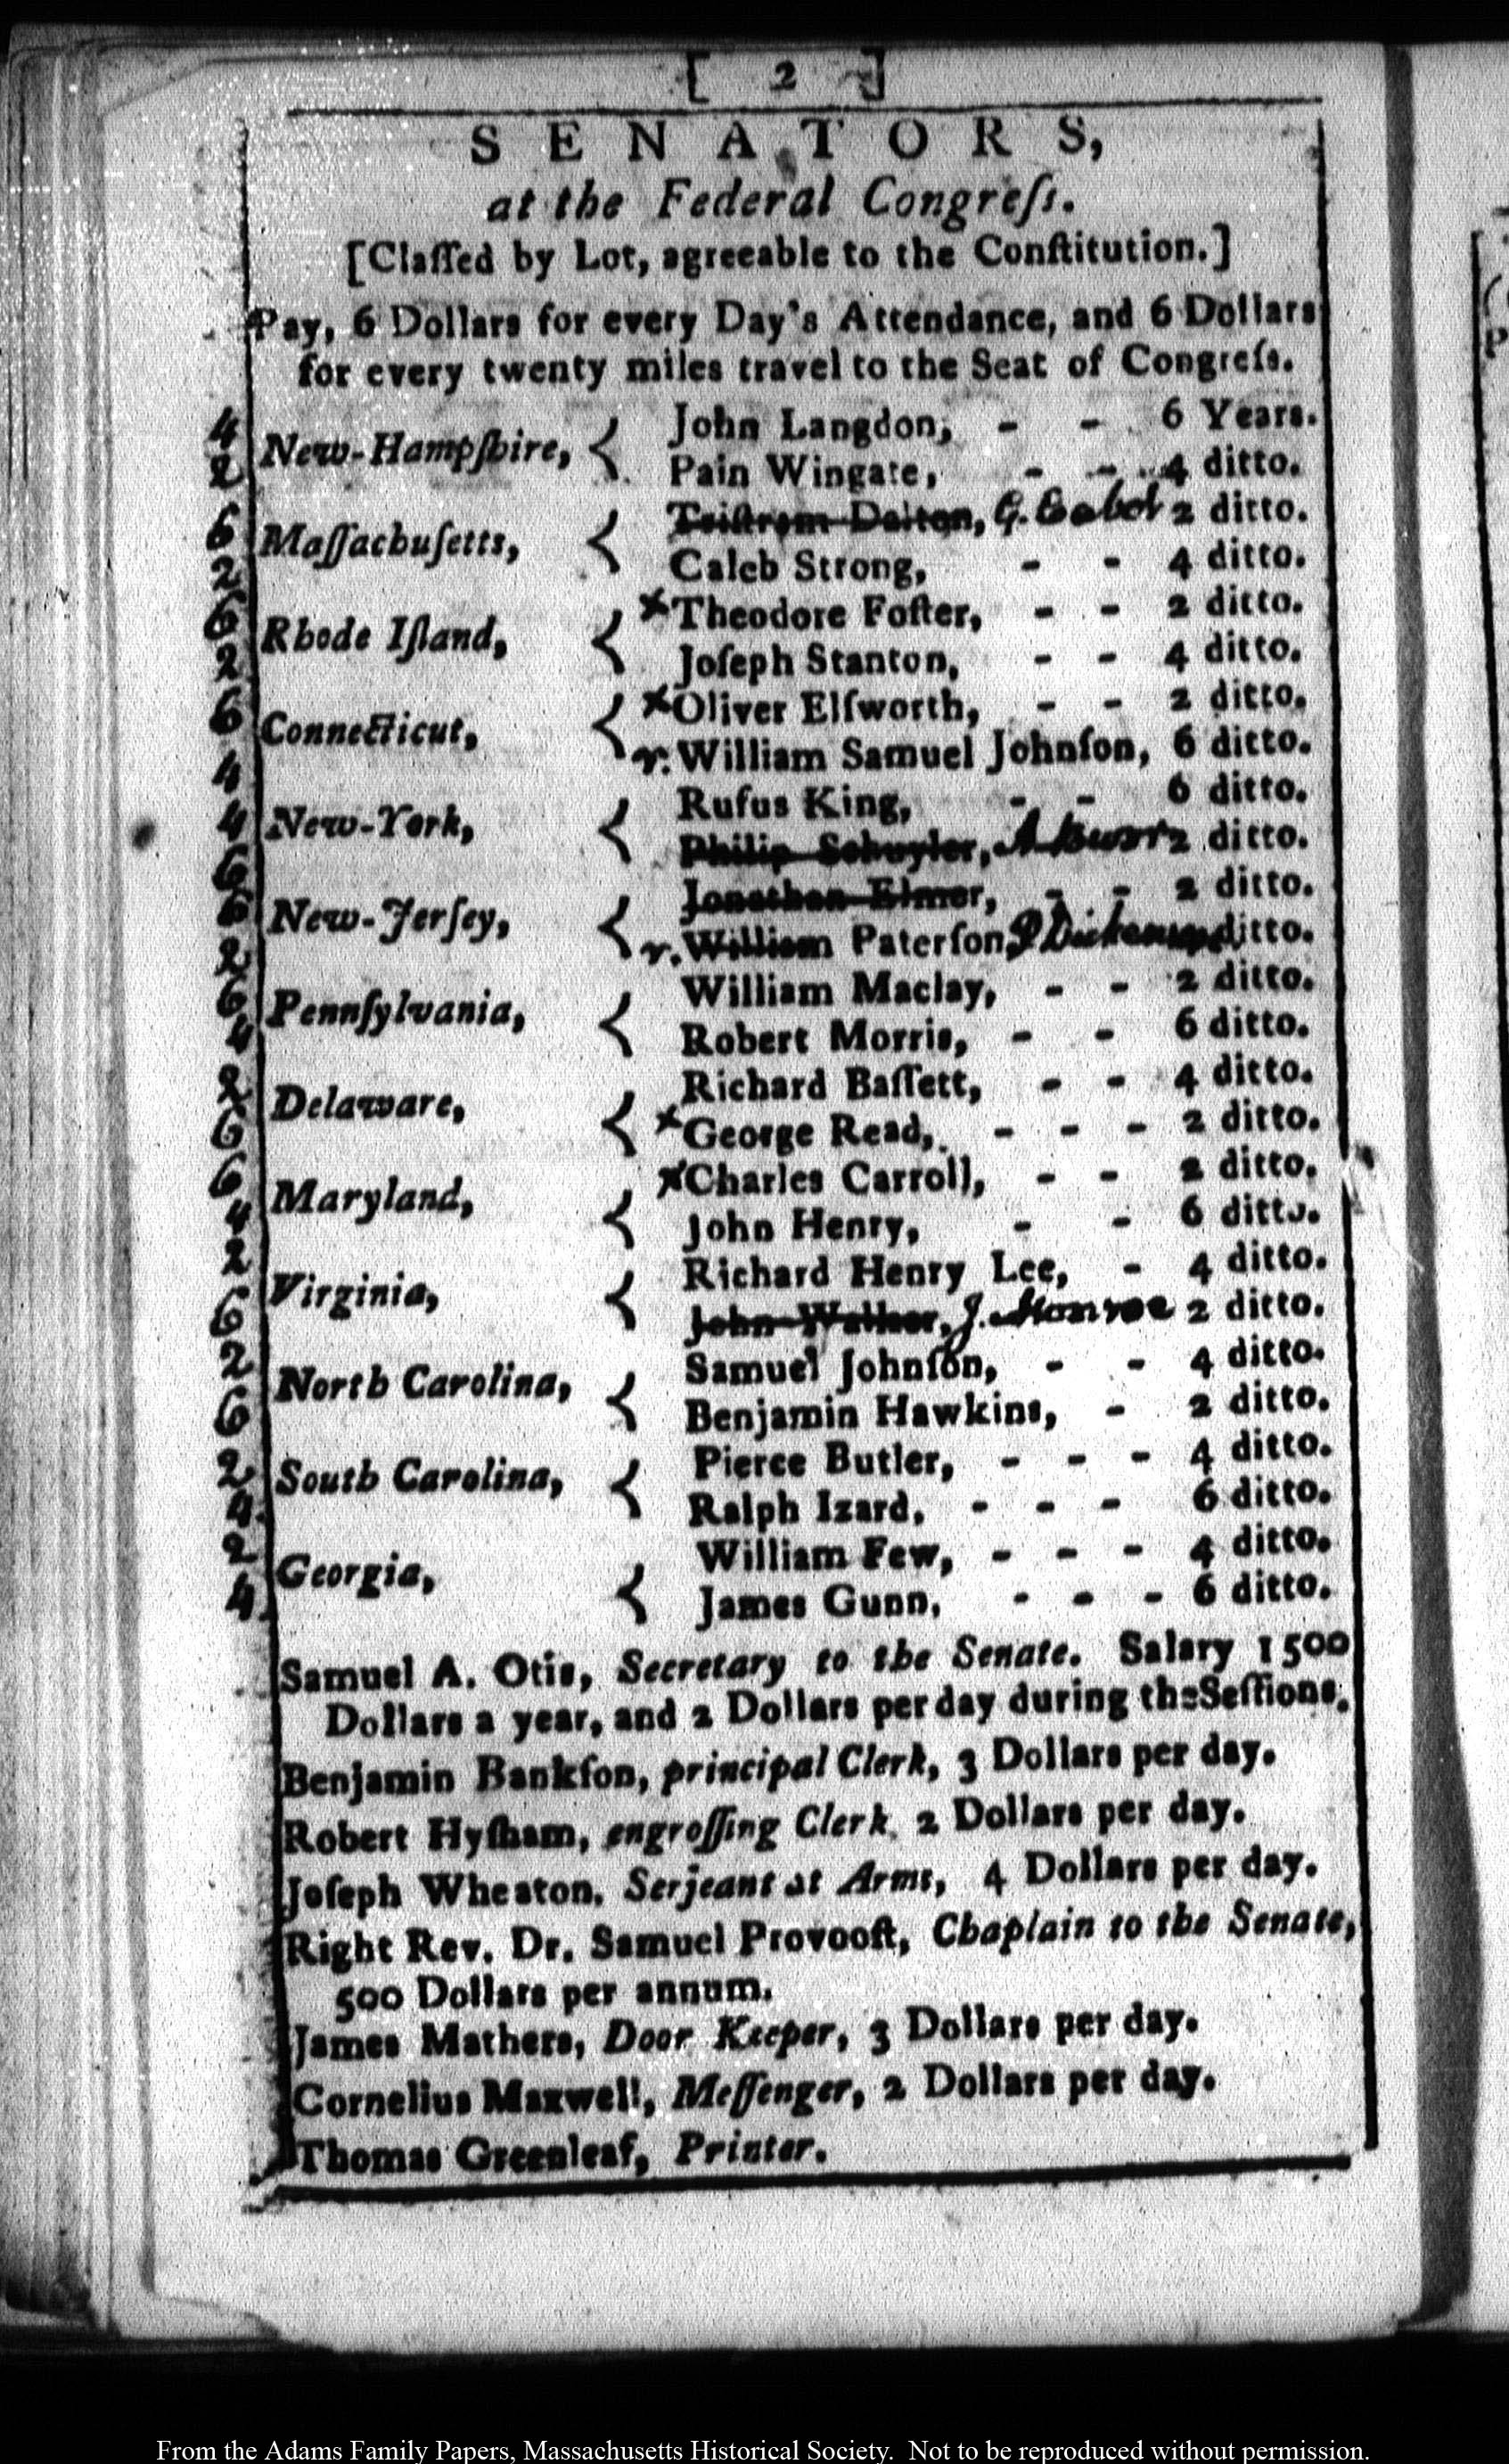 [ 2 ]
SENATORS,
at the Federal Congreſs.
[Claſſed by Lot, agreeable to the Conſtitution.]
Pay, 6 Dollars for every Day's Attendance, and 6 Dollars
for every twenty miles travel to the Seat of Congreſs.
4 John Langdon, - - 6 Years.
New-Hampſhire, {
2 Pain Wingate, - - 4 ditto.
6 Triſtram Dalton, G. Cabot 2 ditto.
Maſſachuſetts, {
2 Caleb Strong, - - 4 ditto.
6 x Theodore Foſter, - - 2 ditto.
Rhode Iſland, {
2 Joſeph Stanton, - - 4 ditto.
6 x Oliver Elſworth, - - 2 ditto.
Connecticut, {
4 r. William Samuel Johnſon, 6 ditto.
4 Rufus King, - - 6 ditto.
New-York, {
6 Philip Schuyler, A Burr 2 ditto.
6 Jonathan Elmer, - - 2 ditto.
New-Jerſey, {
2 r. William Paterſon, P Dickenson ditto.
6 William Maclay, - - 2 ditto.
Pennſylvania, {
4 Robert Morris, - - 6 ditto.
2 Richard Baſſett, - - 4 ditto.
Delaware, {
6 x George Read, - - - 2 ditto.
6 x Charles Carroll, - - 2 ditto.
Maryland, {
4 John Henry, - - 6 ditto.
2 Richard Henry Lee, - 4 ditto.
Virginia, {
6 John Walker, J. Monroe 2 ditto.
2 Samuel Johnſon, - - 4 ditto.
North Carolina, {
6 Benjamin Hawkins, - 2 ditto.
2 Pierce Butler, - - - 4 ditto.
South Carolina, {
4. Ralph Izard, - - - 6 ditto.
2 William Few, - - - 4 ditto.
Georgia, {
4. James Gunn, - - - 6 ditto.
Samuel A. Otis, Secretary to the Senate. Salary 1500
Dollars a year, and 2 Dollars per day during the Seſſions.
Benjamin Bankſon, principal Clerk, 3 Dollars per day.
Robert Hyſham, engroſſing Clerk, 2 Dollars per day.
Joſeph Wheaton, Serjeant at Arms, 4 Dollars per day.
Right Rev. Dr. Samuel Provooſt, Chaplain to the Senate,
500 Dollars per annum.
James Mathers, Door Keeper, 3 Dollars per day.
Cornelius Maxwell, Meſſenger, 2 Dollars per day.
Thomas Greenleaf, Printer.
From the Adams Family Papers, Massachusetts Historical Society. Not to be reproduced without permission.